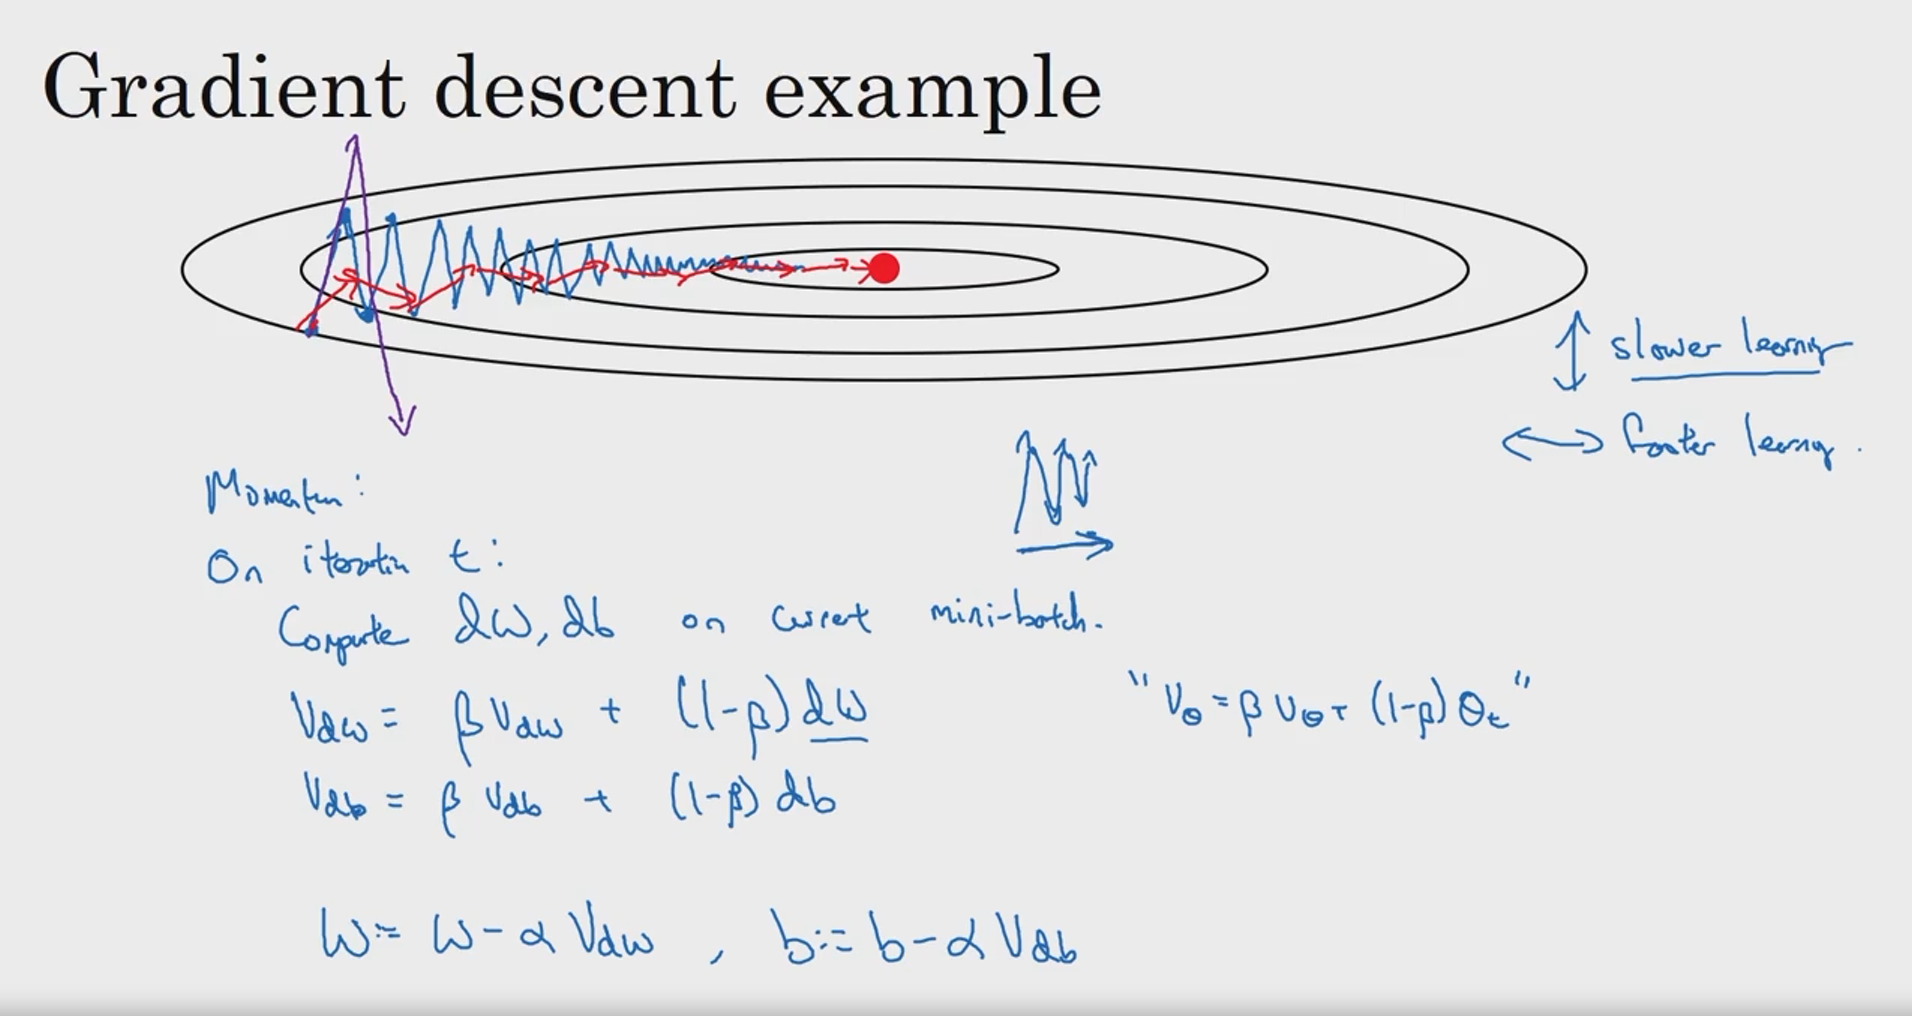 Gradient descent example
↕ slower learning
↔ faster learning.
Momentum:
On iteration t:
Compute dW, db on current mini-batch.
V_dW = β V_dW + (1-β) dW
"V_θ = β V_θ + (1-β) θ_t"
V_db = β V_db + (1-β) db
W := W - α V_dW , b := b - α V_db